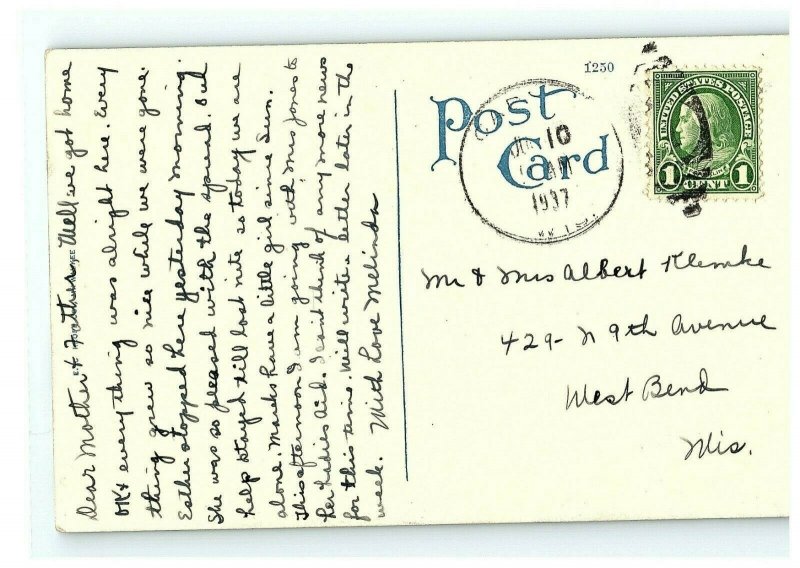 Dear Mother & Father Well we got home
OK & everything was alright here. Every
thing grew so nice while we were gone.
Esther stopped here yesterday morning.
She was so pleased with the spread. Our
help stayed till last nite so today we are
alone. Marks have a little girl since Sun.
This afternoon I am going with Mrs Jones to
her Ladies Aid. I can't think of any more news
for this time. Will write a letter later in the
week. With Love Melinda
1250
Post
Card
10
1937
UNITED STATES POSTAGE
1 CENT 1
Mr & Mrs Albert Klemke
429- N 9th Avenue
West Bend
Wis.